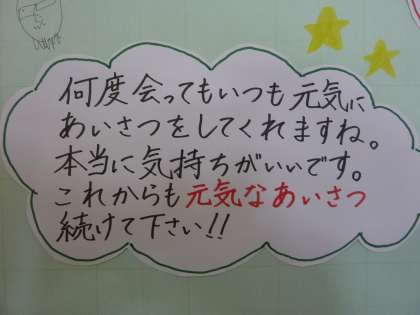 何度会ってもいつも元気に
あいさつをしてくれますね。
本当に気持ちがいいです。
これからも元気なあいさつ
続けて下さい!!